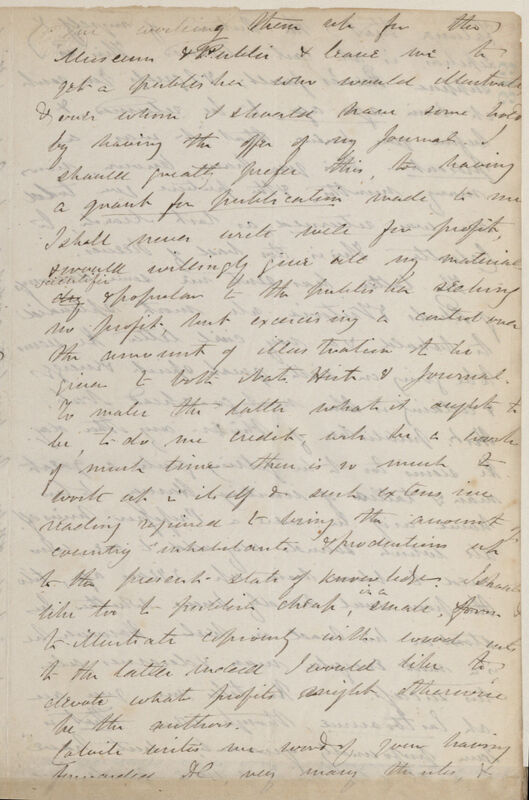 for working them up for the
Museum & Public & leave me to
get a publisher who would illustrate
& over whom I should have some hold
by having the offer of my Journal. I
should greatly prefer this, to having
a grant for publication made to me
I shall never write well for profit,
& would willingly give all my material
scientific & popular to the publisher seeking
no profit but exercising a control over
the amount of illustration to be
given to both Nat. Hist. & Journal.
To make the latter what it ought to
be, to do me credit, will be a work
of much time there is so much to
work at in itself & such extensive
reading required to bring the amount of
country inhabitants & productions up
to the present state of knowledge. I should
like too to publish cheap in a small form &
to illustrate copiously with wood cuts
to the latter indeed I would like to
devote what profits might otherwise
be the authors.
writes me word of your having
forwarded &c very many thanks, &